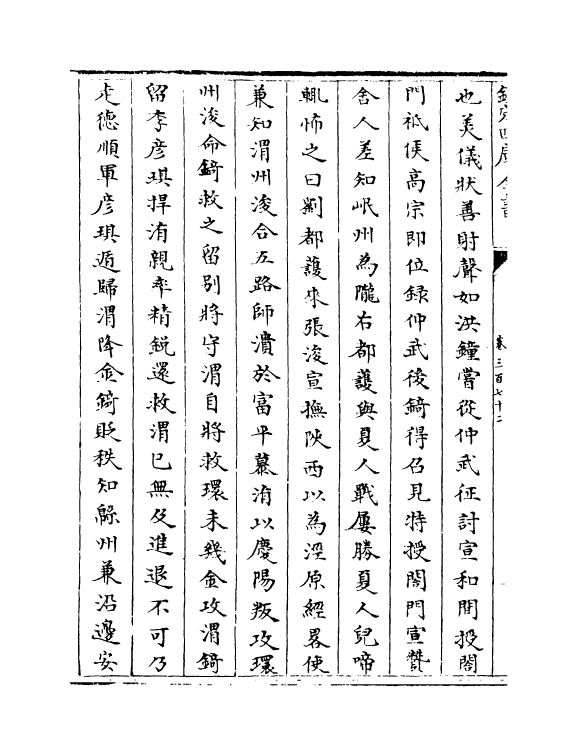 欽定四庫全書
卷三百七十二
也美儀狀善射聲如洪鐘嘗從仲武征討宣和間授閤
門祗侯高宗即位録仲武後錡得召見特授閤門宣贊
舍人差知岷州為隴右都䕶與夏人戰屢勝夏人兒啼
輒怖之曰劉都䕶來張浚宣撫陜西以為涇原經畧使
兼知渭州浚合五路師潰於富平慕洧以慶陽叛攻環
州浚命錡救之留别將守渭自將救環未幾金攻渭錡
留李彦琪捍洧親率精鋭還救渭已無及進退不可乃
走德順軍彦琪遁歸渭降金錡貶秩知緜州兼沿邊安